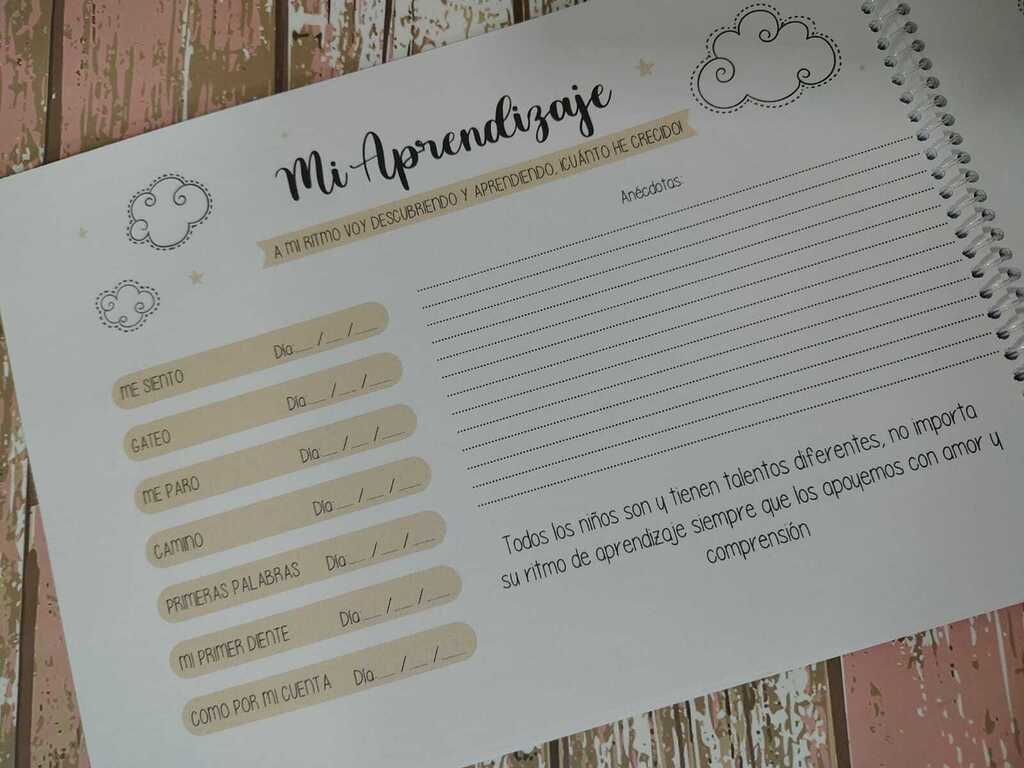 Mi Aprendizaje
A MI RITMO VOY DESCUBRIENDO Y APRENDIENDO, ¡CUÁNTO HE CRECIDO!
ME SIENTO Día__ /__ /__
GATEO Día__ /__ /__
ME PARO Día__ /__ /__
CAMINO Día__ /__ /__
PRIMERAS PALABRAS Día__ /__ /__
MI PRIMER DIENTE Día__ /__ /__
COMO POR MI CUENTA Día__ /__ /__
Anécdotas:
Todos los niños son y tienen talentos diferentes, no importa
su ritmo de aprendizaje siempre que los apoyemos con amor y
comprensión